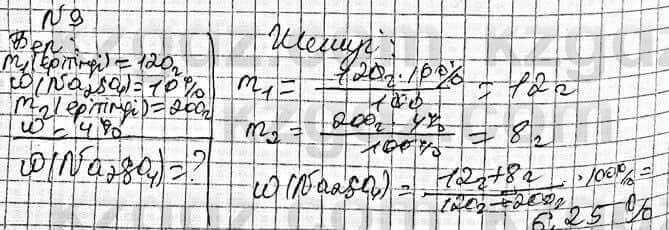 N9
Бер:
m₁(ерітінді)=120г
ω(Na₂SO₄)=10%
m₂(ерітінді)=200г
ω=4%
ω(Na₂SO₄)=?
Шешуі:
m₁ = 120г·10% / 100 = 12г
m₂ = 200г·4% / 100% = 8г
ω(Na₂SO₄) = 12г+8г / 120г+200г · 100% =
6,25%